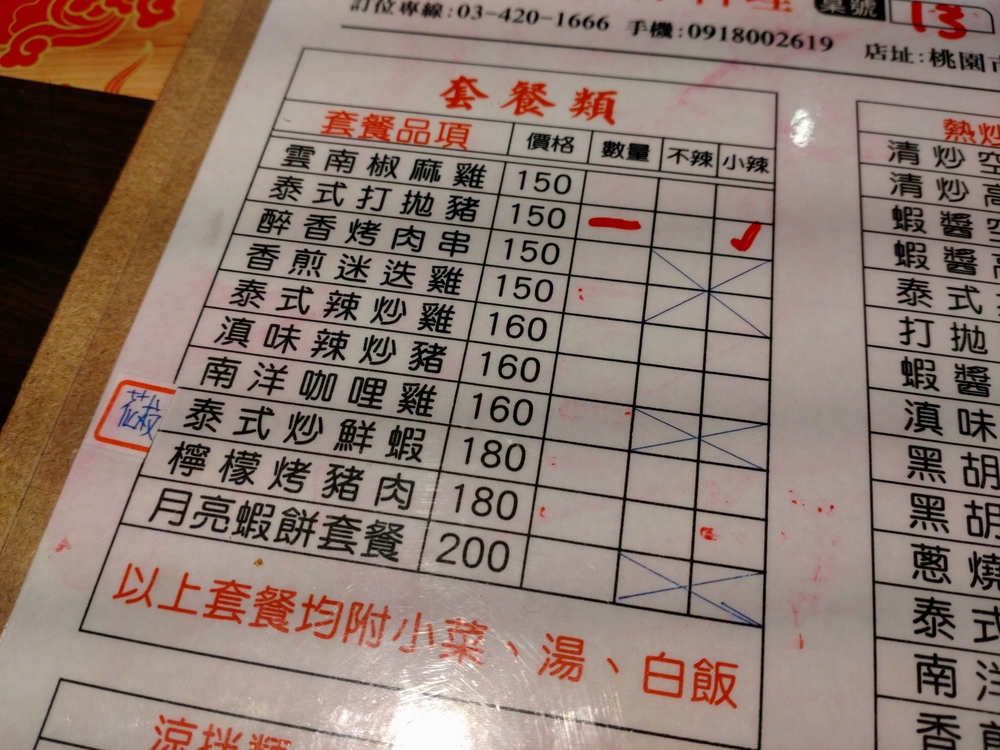 訂位專線:03-420-1666 手機:0918002619 店址:桃園市
桌號 13
套餐類
套餐品項 價格 數量 不辣 小辣
雲南椒麻雞 150
泰式打拋豬 150
醉香烤肉串 150
香煎迷迭雞 150
泰式辣炒雞 160
滇味辣炒豬 160
南洋咖哩雞 160
泰式炒鮮蝦 180
檸檬烤豬肉 180
月亮蝦餅套餐 200
以上套餐均附小菜、湯、白飯
涼拌類
熱炒
清炒空
清炒高
蝦醬空
蝦醬高
泰式
打拋
蝦醬
滇味
黑胡
黑胡
蔥燒
泰式
南洋
香煎